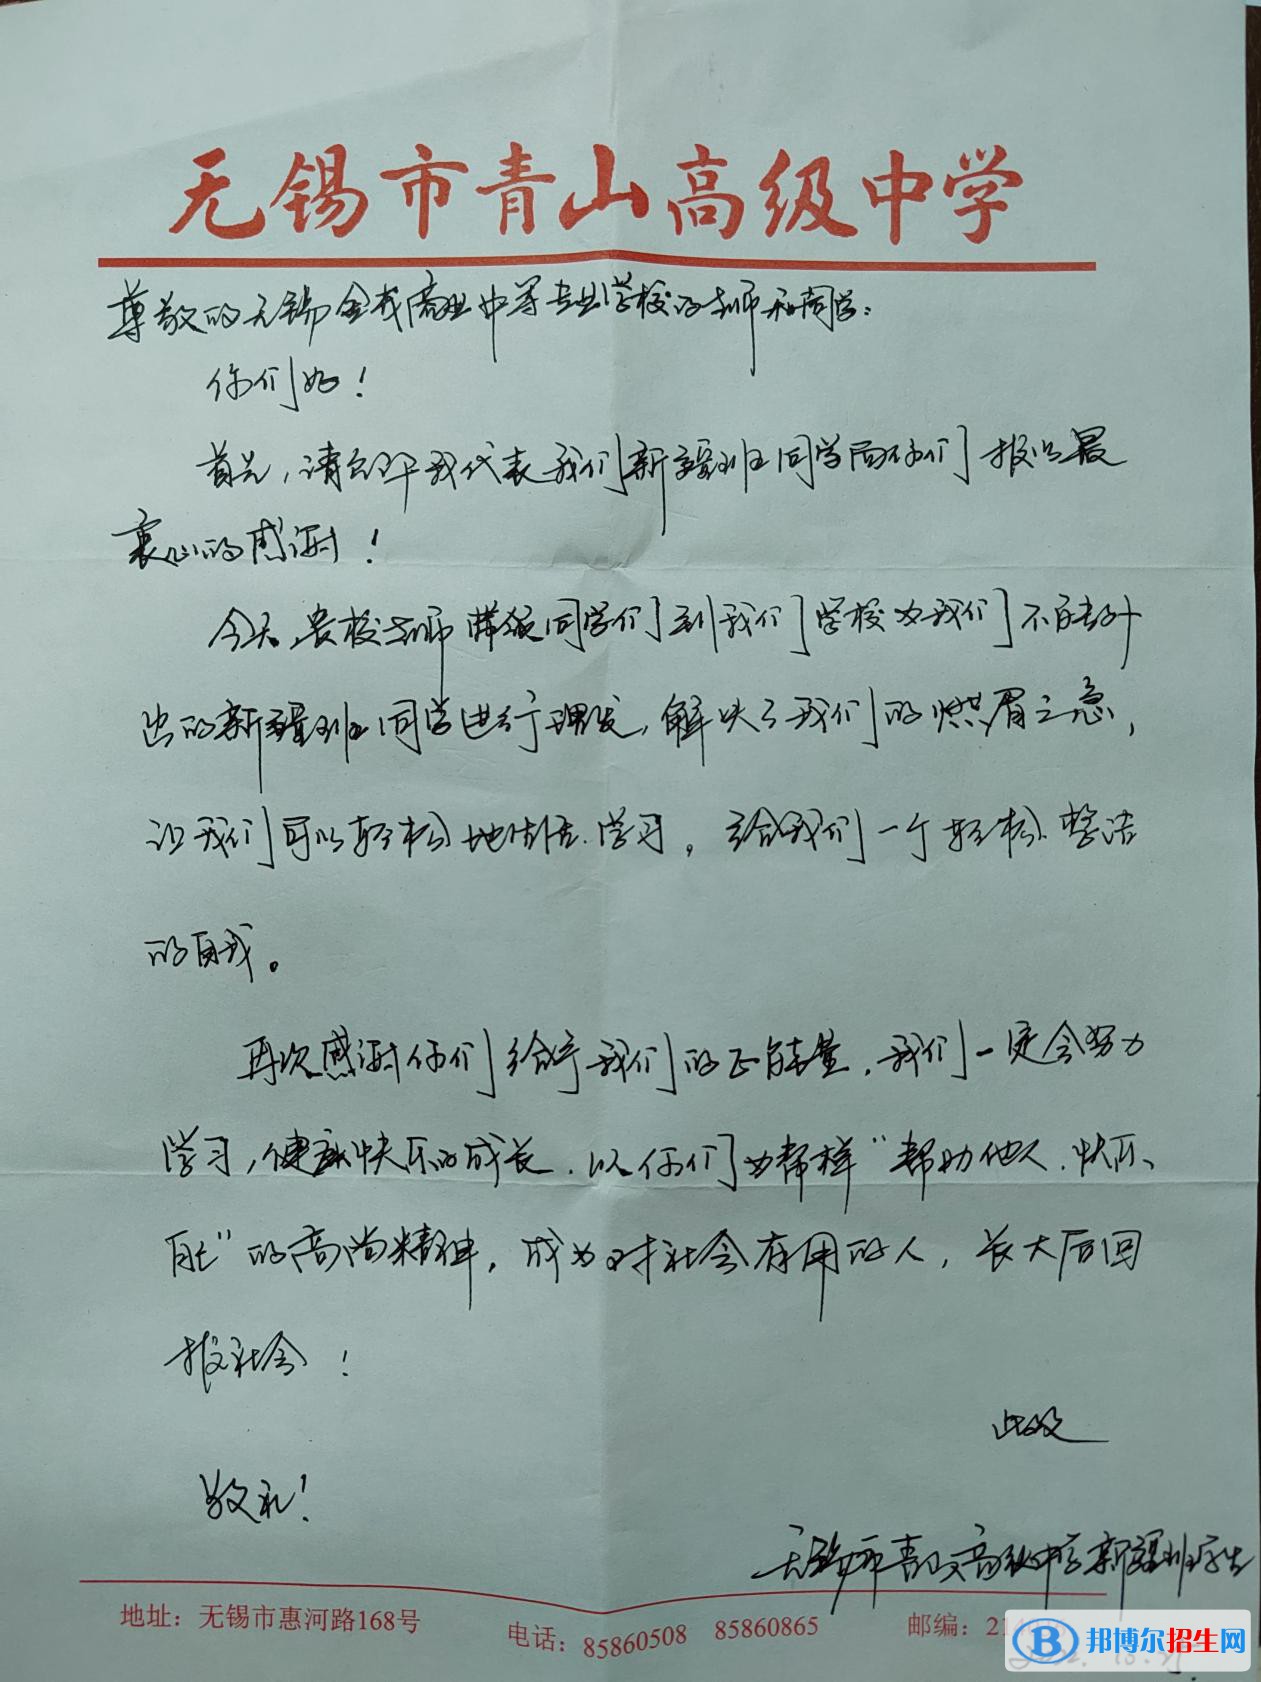 无锡市青山高级中学
尊敬的无锡金茂商业中等专业学校的老师和同学：
你们好！
首先，请允许我代表我们新疆班同学向你们报以最
衷心的感谢！
今天，贵校老师带领同学们到我们学校为我们不能外
出的新疆班同学进行理发，解决了我们的燃眉之急，
让我们可以轻松地生活、学习，给我们一个轻松、整洁
的自我。
再次感谢你们给予我们的正能量，我们一定会努力
学习，健康快乐的成长，以你们为榜样“帮助他人，快乐
自己”的高尚精神，成为对社会有用的人，长大后回
报社会！
此致
敬礼！
无锡市青山高级中学新疆班学生
地址：无锡市惠河路168号
电话：85860508 85860865
邮编：21
邦博尔招生网